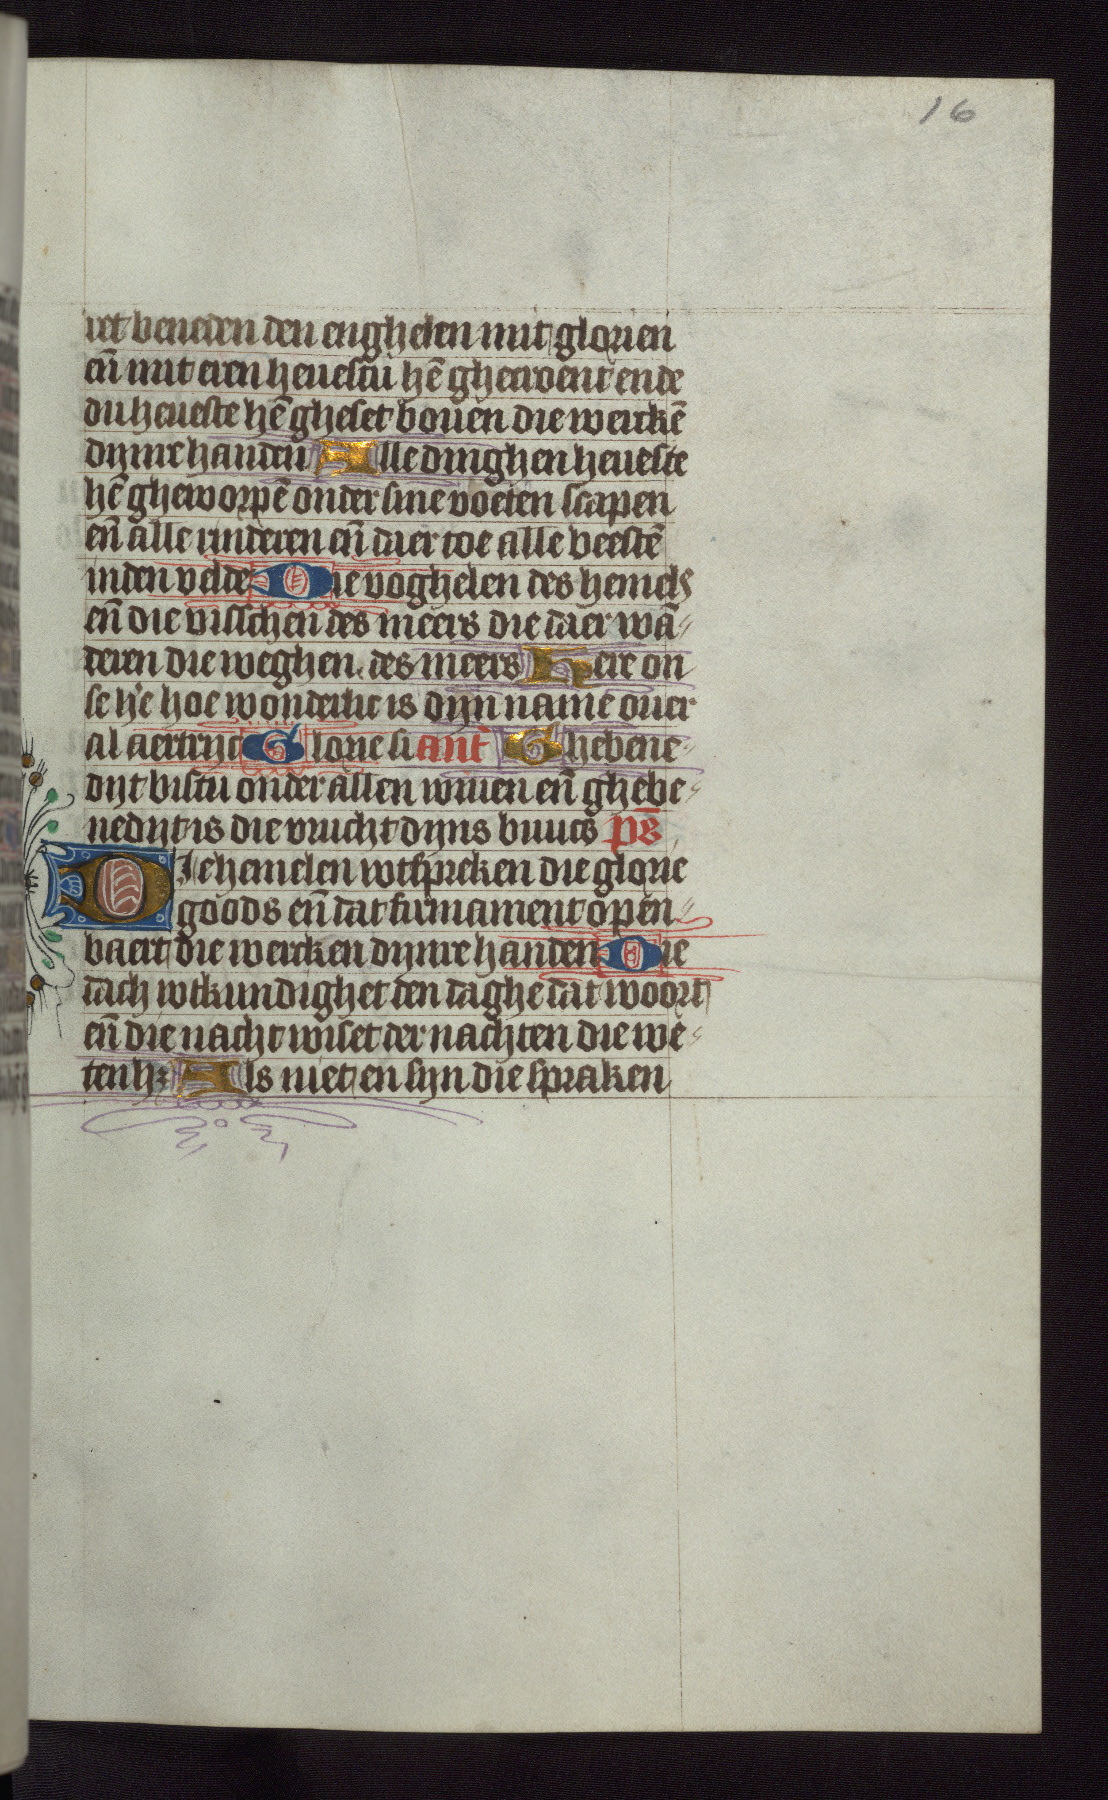 16
tet beneden den enghelen mit glorien
eñ mit eren heuestu hē ghecroent ende
du heueste hē gheset bouen die werckē
dijnre handen Alle dinghen heueste
hē gheworpē onder sine voeten scapen
eñ alle runderen eñ daer toe alle beestē
inden velde Die voghelen des hemels
eñ die visschen des meers die daer wā
deren die weghen des meers Here on
se he hoe wonderlic is dijn name ouer
al aertrijc Glorie si ant Ghebene
dijt bistu onder allen wiuen eñ ghebe
nedijt is die vrucht dijns buucs ps
Die hemelen wtspreken die glorie
goods eñ dat firmament open
baert die wercken dijnre handen Die
dach wtkundighet den daghe dat woort
eñ die nacht wiset der nachten die we
tenh Als niet en sijn die spraken